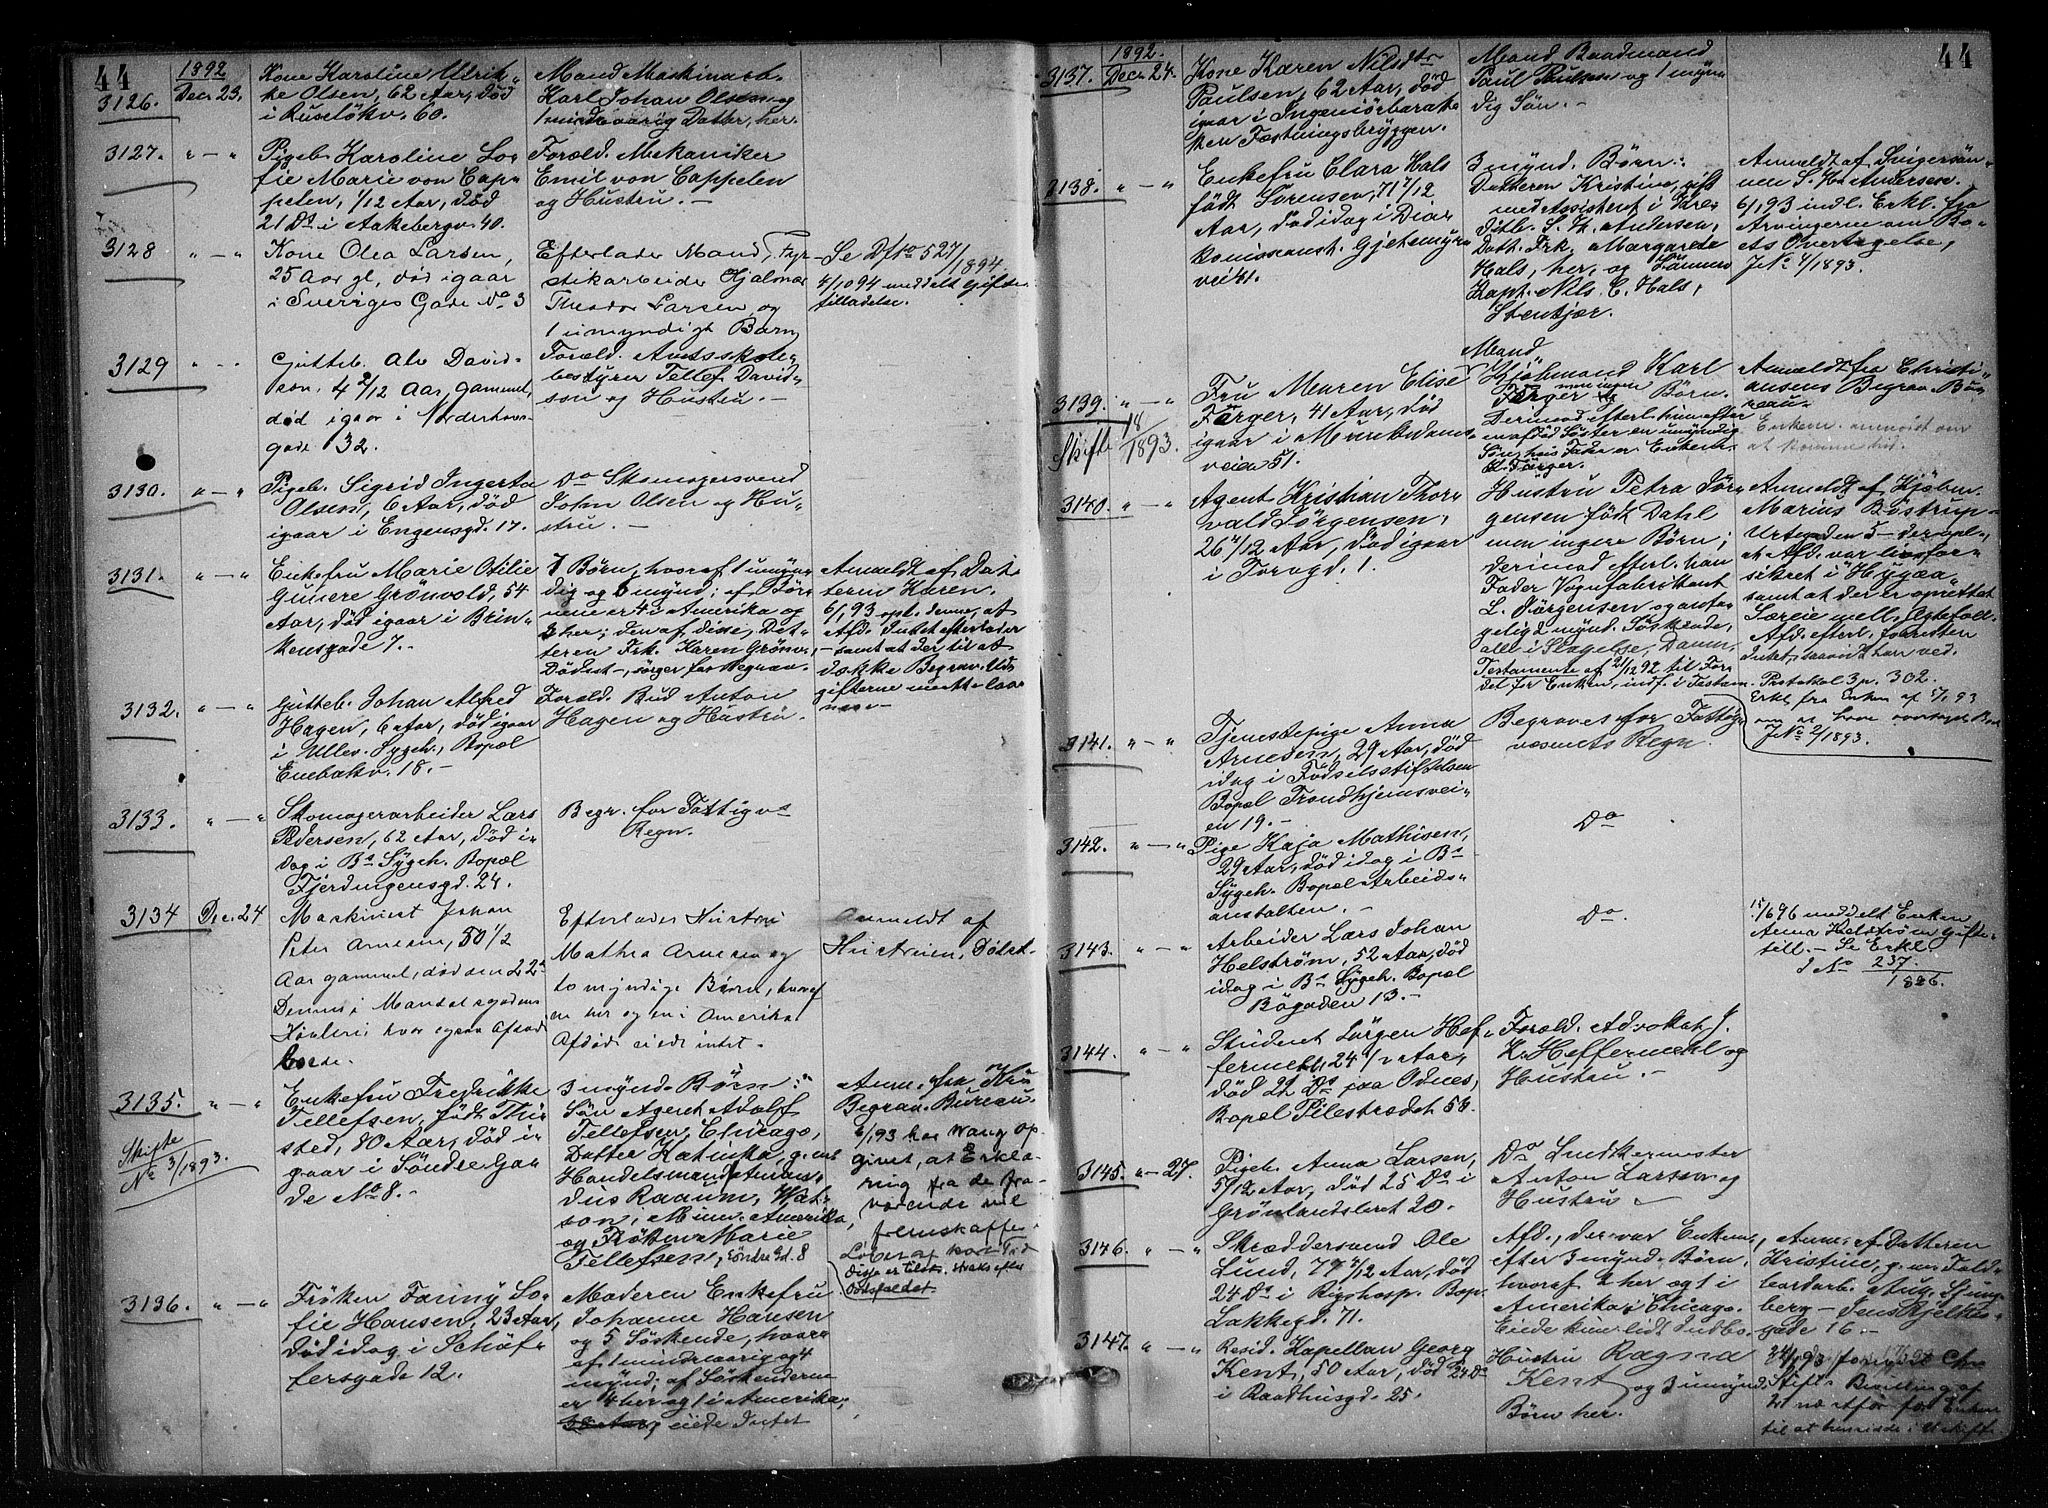 44
1892
3126. Decr 23.
Kone Karoline Ulrik-
ke Olsen, 62 Aar, død
i Ruseløkv. 60.
Mand Maskinarb.
Karl Johan Olsen og
1 mindreaarig Datter, her.
3127. " — "
Pigeb. Karoline So-
fie Marie von Cap-
pelen, 1/12 Aar, død
21 Ds i Aakebergv. 40.
Foræld. Mekaniker
Emil von Cappelen
og Hustru. —
3128 " — "
Kone Olea Larsen,
25 Aar gl, død igaar
i Sveriges Gade No 3
Efterlader Mand, Fyr-
stikarbeider Hjalmar
Theodor Larsen og
1 umyndigt Barn
Se Df No 527/1894
4/1094 meddelt Gifte-
tilladelse.
3129 " — "
Gutteb. Alv David-
son. 4 2/12 Aar, gammel,
død igaar i Nordehovs-
gade 32.
Foræld. Amtsskole-
bestyrer Tellef David-
son og Hustru. —
3130. " — "
Pigeb. Sigrid Ingerta
Olsen, 6 Aar, død
igaar i Engensgd. 17.
Do Skomagersvend
John Olsen og Hu-
stru. —
3131. " — "
Enkefru Marie Otilie
Gunere Grönvold, 54
Aar, død igaar i Brin-
kensgade 7.
7 Børn, hvoraf 1 umyn-
dig og 6 mynd; af Bør-
nene er 4 i Amerika og
3 her; den af disse, Dat-
teren Frk. Karen Grönv.,
Dødsat-, sørger for Begrav.
Anmeldt af Dat-
teren Karen.
6/1 93 opl. denne, at
Afd. Intet efterlader
— samt at der til at
dække Begrav. Ud-
gifterne maatte laa-
nes —
3132. " — "
Gutteb. Johan Alfred
Hagen, 6 Aar, død igaar
i Ullev. Sygeh., Bopæl
Enebakv. 18. —
Foræld. Bud Anton
Hagen og Hustru.
3133. " — "
Skomagerarbeider Lars
Pedersen, 62 Aar, død i-
dag i Bs Sygeh. Bopæl
Fjerdingensgd. 24.
Begr. for Fattigvs
Regn.
3134 Dec. 24
Maskinist Johan
Peter Arnesen, 50 1/2
Aar gammel, død den 22de
Dennes i Mandalsgadens
hvor ogsaa Afdøde
boede.
Efterlader Hustru
Mathea Arnesen og
to myndige Børn, hvoraf
en her og en i Amerika
Afdøde eiede intet.
Anmeldt af
Hustruen, Dølet-
3135. " — "
Skifte
No 3/1893.
Enkefru Fredrikke
Tellefsen, født Thi-
sted, 80 Aar, død i-
gaar i Söndre Ga-
de No 8.
3 mynd. Børn:
Sön Agent Adolf
Tellefsen, Chicago,
Datter Katinka, g. m.
Handelsmand Aman-
dus Raaum, Wat-
son, Minn. Amerika,
og Frøken Marie
Tellefsen, Søndre Gd. 8
Anm. fra
Begrav. Bureau.
6/1 93 har Wang op-
givet, at Erklæ-
ring fra de fra-
værende vil
fremskaffes.
Dødsfaldet.
3136. " — "
Frøken Fanny So-
fie Hansen, 23 Aar,
død idag i Schäf-
fersgade 12.
Moderen Enkefru
Johanne Hansen
og 5 Söskende, hvor-
af 1 mindreaarig og 4
mynd; af Söskenderne
er 4 her og 1 i Amerika,
eiede Intet
44
1892.
3137. Decr. 24.
Kone Karen Nilsdtr
Paulsen, 62 Aar, død
igaar i Ingeniørbarak-
ken Fæstningsbryggen.
Mand Baadmand
Paul Paulsen og 1 myn-
dig Søn. —
3138. " — "
Enkefru Clara Hals
født Sørensen, 71 4/12
Aar, død idag i Dia-
konissanst. Gjetemyrs-
veien.
3 mynd. Börn:
Datteren Kristine, gift
med Assistent i
S. H. Andersen,
Datt. Frk. Margarete
Hals, her, og Sønnen
Kapt. Nils C. Hals,
Stenkjær.
Anmeldt af Svigersøn-
nen S. H. Andersen.
6/1 93 indl. Erkl. fra
Arvingerne om Bo-
ets Overtagelse,
J No 4/1893.
3139. " — "
Skifte 18/1893.
Fru Maren Elise
Færger, 41 Aar, død
igaar i Munkedams-
veien 51.
Mand
Karl
Færger men ingen Børn.
Derimod efterl. hun efter
en afdød Søster en umyndig
Søn, hvis Fader er Enkem.
K. Færger.
Anmeldt fra Christi-
ansens Begrav. Bu-
reau.
Enkem. anmodet om
at komme hid.
3140. " — "
Agent Kristian Thor-
vald Jørgensen,
26 11/12 Aar, død igaar
i Torvgd. 1.
Hustru Petra Jør-
gensen født Dahl
men ingen Børn;
derimod efterl. han
Fader Vognfabrikant
L. Jørgensen og antage-
gelig 2 mynd. Søskende,
alle i Slagelse, Danm.
Testamente af 21/12 92 til For-
del for Enken, indf. i Testam.
Anmeldt af Kjøbm.
Marius Büstrup,
Urtegaden 5 — der opl.,
at Afd. var livsfor-
sikret i "Hygæa"
samt at der er oprettet
Særeie mell. Ægtefoll.
Afd. efterl. forresten
Intet, saavidt han ved.
Protokol 3 p. 302.
Erkl. fra Enken af 5/1 93
om at hun overtager Boet
J No 2/1893.
3141. " — "
Tjenestepige Anna
Arnesen, 29 Aar, død
idag i Fødselsstiftelsen
Bopæl Trondhjemsvei-
en 19. —
Begraves for Fattig-
væsenets Regn.
3142. " — "
Pige Kaja Mathisen,
29 Aar, død idag i Bs
Sygeh. Bopæl Arbeids-
anstalten. —
Do
3143. " — "
Arbeider Lars Johan
Helström, 52 Aar, død
idag i Bs Sygeh. Bopæl
Bögaden 13. —
Do.
15/6 96 meddelt Enken
Anna Helstrøm Gifte-
till. — Se Erkl.
J No 237/1896.
3144. " — "
Student Jörgen Hef-
fermehl, 24 1/2 Aar,
død 22 Ds paa Odnes,
Bopæl Pilestrædet 56.
Foræld. Advokat J.
K. Heffermehl og
Hustru. —
3145. " — 27.
Pigeb. Anna Larsen,
5/12 Aar, død 25 Ds i
Grønlandsleret 20.
Do Snedkermester
Anton Larsen og
Hustru. —
3146. " — "
Skræddersvend Ole
Lund, 77 7/12 Aar, død
24 Ds i Rigshosp. Bop.
Lakkegd. 71.
Afd., der var Enkem.,
efter 3 mynd. Børn,
hvoraf 2 her og 1 i
Amerika, i Chicago.
Eiede kun lidt Indbo.
Anm. af Datteren
Kristine, g. m. Told-
bodarb. Aug. Ljung-
berg — Jens Bjelkes-
gade 16. —
3147. " — "
Resid. Kapellan Georg
Kent, 50 Aar, død 24 Ds
i Raadhusgd. 25.
Hustru Ragna
Kent og 3 umynd.
Børn her.
24/1 93 forevist Chr.
Stifts Bevilling af
for Enken
til at hensidde i Uskiftet